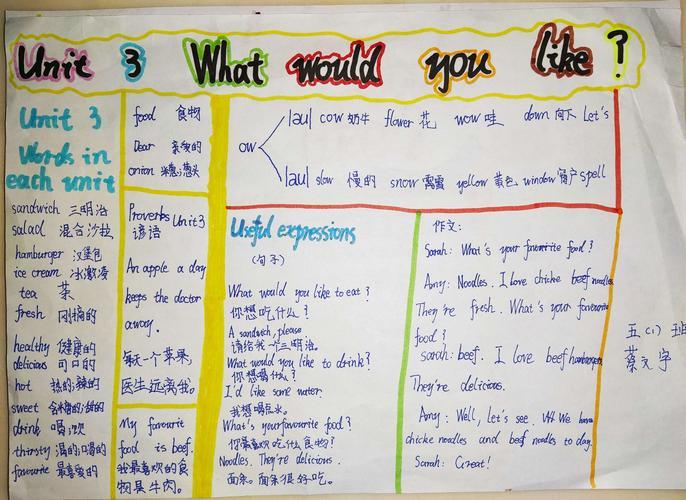 Unit 3 What would you like ?
Unit 3
Words in
each unit
sandwich 三明治
salad 混合沙拉
hamburger 汉堡包
ice cream 冰激凌
tea 茶
fresh 刚摘的
healthy 健康的
delicious 可口的
hot 热的;辣的
sweet 含糖的;甜的
drink 喝;饮
thirsty 渴的;口渴的
favourite 最喜爱的
food 食物
Dear 亲爱的
onion 洋葱;葱头
Proverbs Unit3
谚语
An apple a day
keeps the doctor
away.
每天一个苹果,
医生远离我。
My favourit
food is beef.
我最喜欢的食
物是牛肉。
ow
|au| cow 奶牛 flower 花 wow 哇 down 向下 Let's
|au| slow 慢的 snow 雪 yellow 黄色 window 窗户 spell
Useful expressions
(句子)
What would you like to eat?
你想吃什么?
A sandwich, please
请给我一个三明治.
What would you like to drink?
你想喝什么?
I'd like some water.
我想喝点水。
What's your favourite food?
你最喜欢吃什么食物?
Noodles. They're delicious.
面条。面条很好吃。
作文:
Sarah: What's your favourite food?
Amy: Noodles. I Love chicke beef noodles
They're fresh. What's your favourite
food?
Sarah: beef. I love beef hamburgers
They're delicious.
Amy: Well, Let's see. We have
chicke noodles and beef noodles to day.
Sarah: Great!
五(1)班
蔡文宇